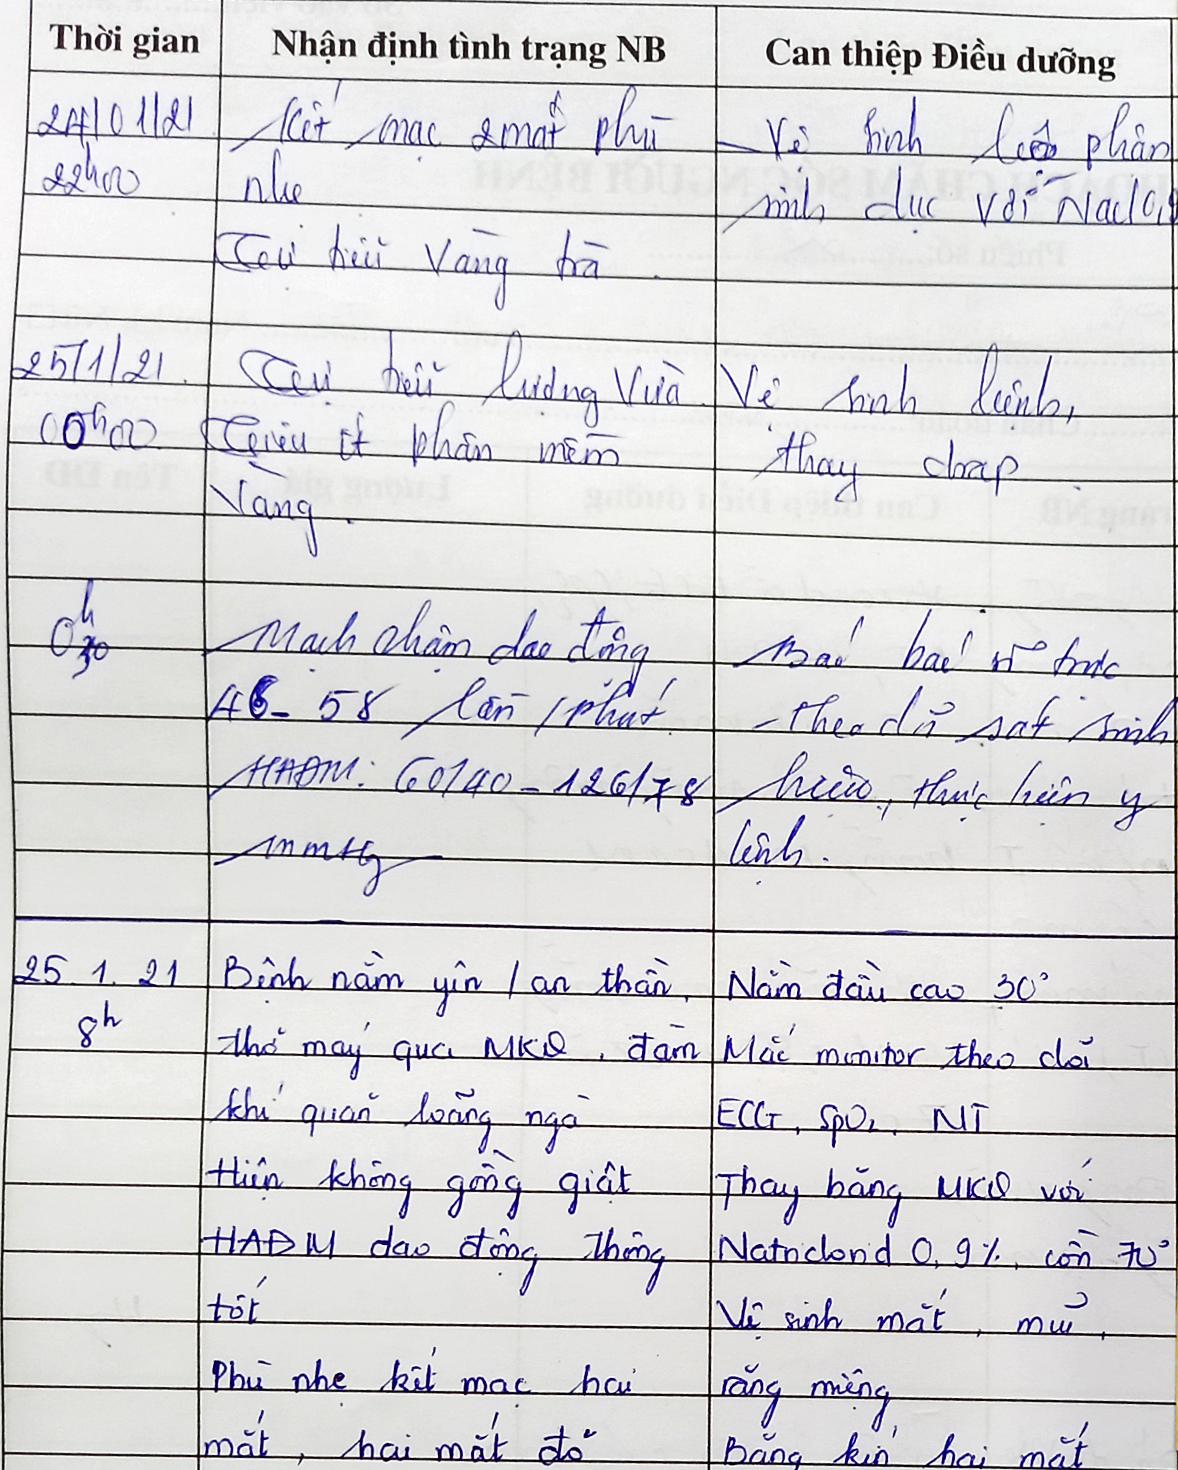 Thời gian
Nhận định tình trạng NB
Can thiệp Điều dưỡng
24/01/21
22h00
Kết mạc 2 mắt phù
nhẹ
Tiểu vàng trà.
Vệ sinh bộ phận
sinh dục với Nacl 0,9
25/1/21
00h00
tiểu lượng vừa
Tiêu ít phân mềm
vàng.
Vệ sinh bệnh,
thay drap.
0h30
Mạch chậm dao động
46 - 58 lần/phút
HAĐM: 60/40 - 126/78
mmHg
Báo bác sĩ trực
theo dõi sát sinh
hiệu, thực hiện y
lệnh.
25.1.21
8h
Bệnh nằm yên / an thần,
thở máy qua MKQ, đàm
khí quản loãng ngà
Hiện không gồng giật
HAĐM dao động thông
tốt
Phù nhẹ kết mạc hai
mắt, hai mắt đỏ
Nằm đầu cao 30°
Mắc monitor theo dõi
ECG, SpO2, NT
Thay băng MKQ với
Natriclorid 0,9%, cồn 70°
Vệ sinh mắt, mũi,
răng miệng
Băng kín hai mắt